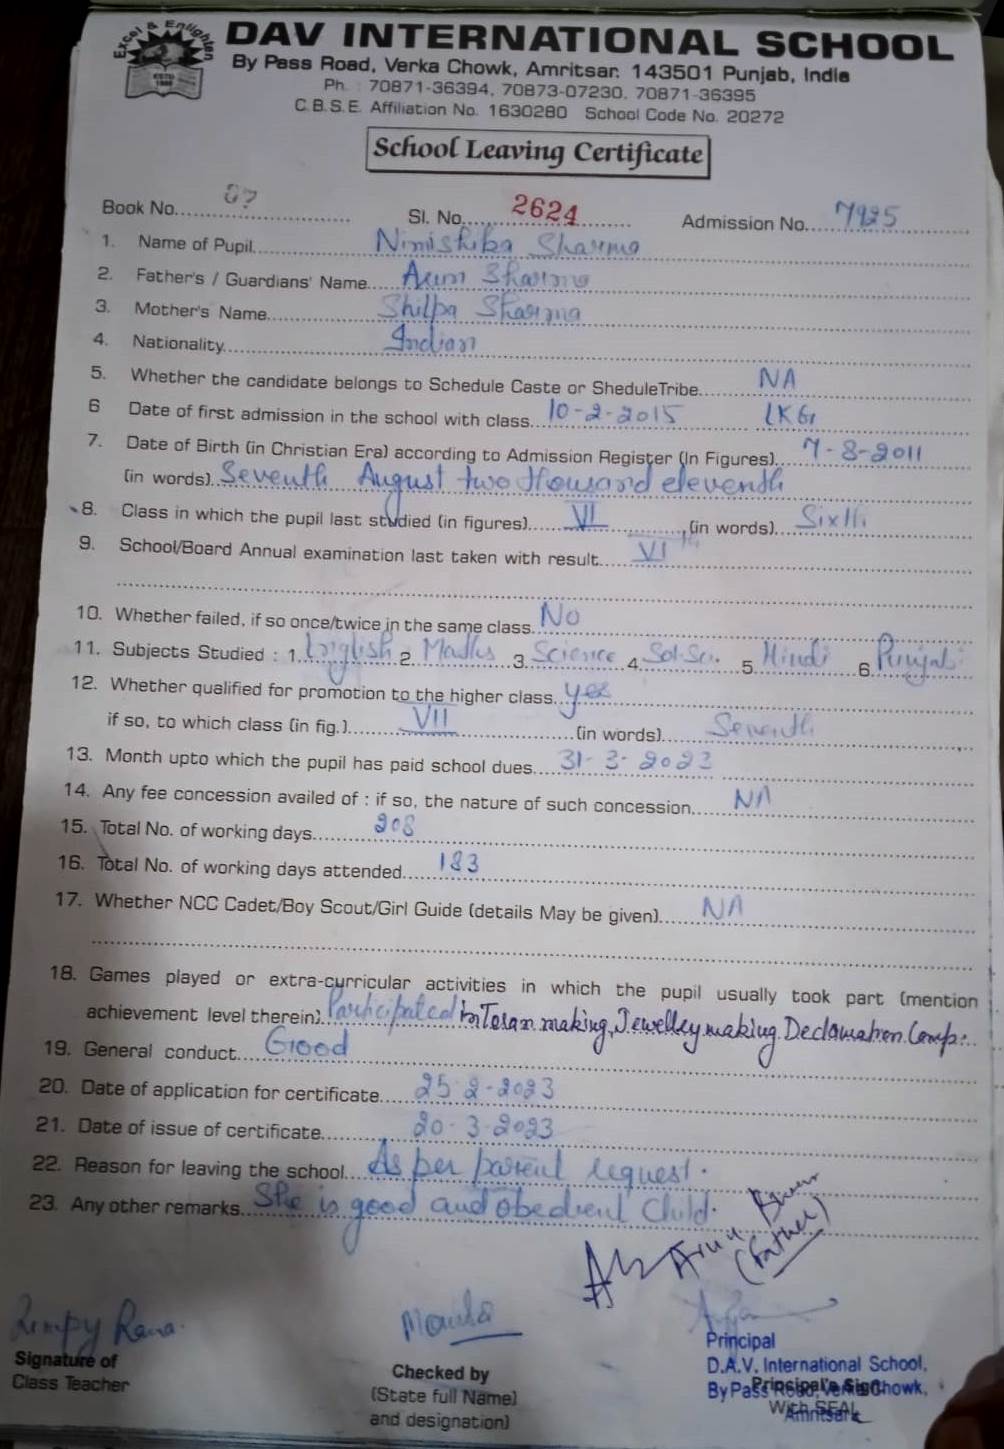 Excel & Enlighten
DAV INTERNATIONAL SCHOOL
By Pass Road, Verka Chowk, Amritsar. 143501 Punjab, India
Ph. : 70871-36394, 70873-07230, 70871-36395
C.B.S.E. Affiliation No. 1630280 School Code No. 20272
School Leaving Certificate
Book No. 07 Sl. No. 2624 Admission No. 7925
1. Name of Pupil Nimishiba Sharma
2. Father's / Guardians' Name Arun Sharma
3. Mother's Name Shilpa Sharma
4. Nationality Indian
5. Whether the candidate belongs to Schedule Caste or SheduleTribe NA
6 Date of first admission in the school with class 10-2-2015 LKG
7. Date of Birth (in Christian Era) according to Admission Register (In Figures) 7-8-2011
(in words) Seventh August two thousand eleventh
8. Class in which the pupil last studied (in figures) VI , (in words) Sixth
9. School/Board Annual examination last taken with result VI th
10. Whether failed, if so once/twice in the same class No
11. Subjects Studied : 1. English 2. Maths 3. Science 4. Sol.Sci. 5. Hindi 6. Punjabi
12. Whether qualified for promotion to the higher class yes
if so, to which class (in fig.) VII (in words) Seventh
13. Month upto which the pupil has paid school dues 31-3-2023
14. Any fee concession availed of : if so, the nature of such concession NA
15. Total No. of working days 208
16. Total No. of working days attended 183
17. Whether NCC Cadet/Boy Scout/Girl Guide (details May be given) NA
18. Games played or extra-curricular activities in which the pupil usually took part (mention
achievement level therein) Participated in Toran making, Jewelley making, Declamation Comp.
19. General conduct Good
20. Date of application for certificate 25-2-2023
21. Date of issue of certificate 20-3-2023
22. Reason for leaving the school As per parent request.
23. Any other remarks She is good and obedient Child.
Arun
(Father)
Rana
Signature of
Class Teacher
Checked by
(State full Name)
and designation)
Principal
D.A.V. International School,
By Pass Road, Verka Chowk,
Amritsar.
Principal's Sig
With SEAL